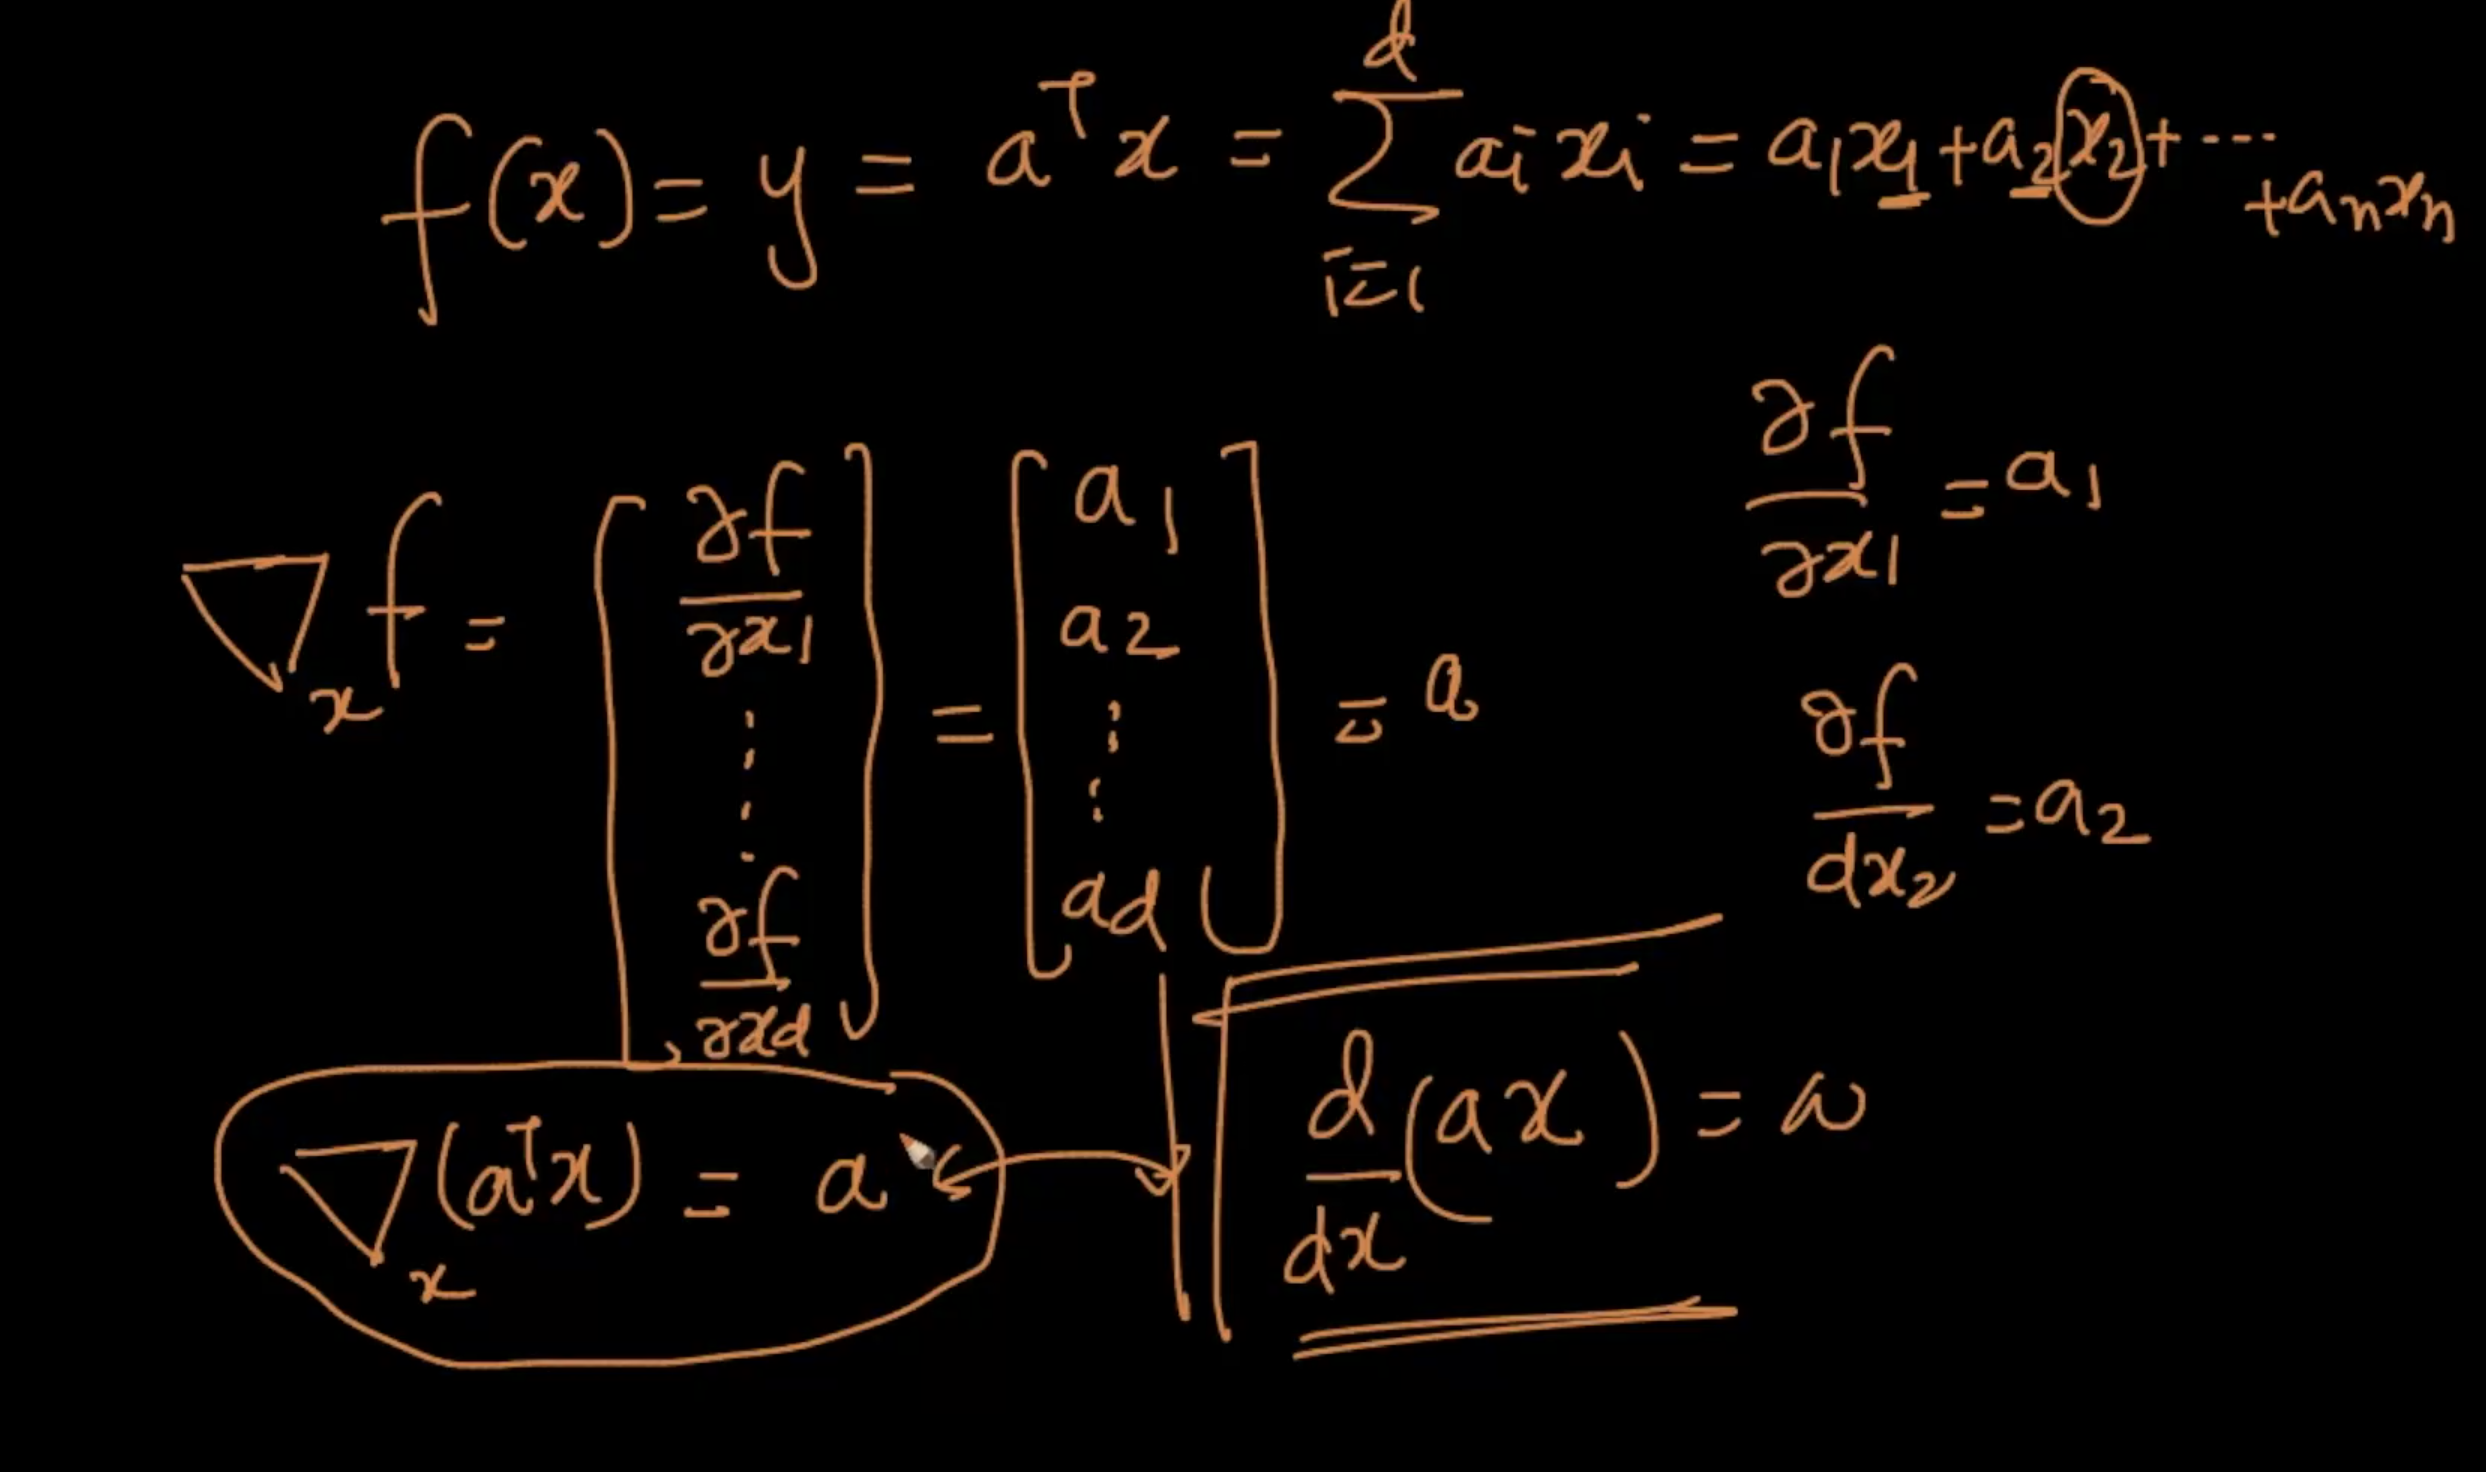 f(x) = y = aᵀx = ∑_{i=1}^{d} aᵢxᵢ = a₁x₁ + a₂x₂ + ---- + aₙxₙ
∂f/∂x₁ = a₁
∇ₓf = [∂f/∂x₁ ⋮ ∂f/∂x_d] = [a₁ a₂ ⋮ a_d] = a
∂f/dx₂ = a₂
∇ₓ(aᵀx) = a
d/dx (ax) =